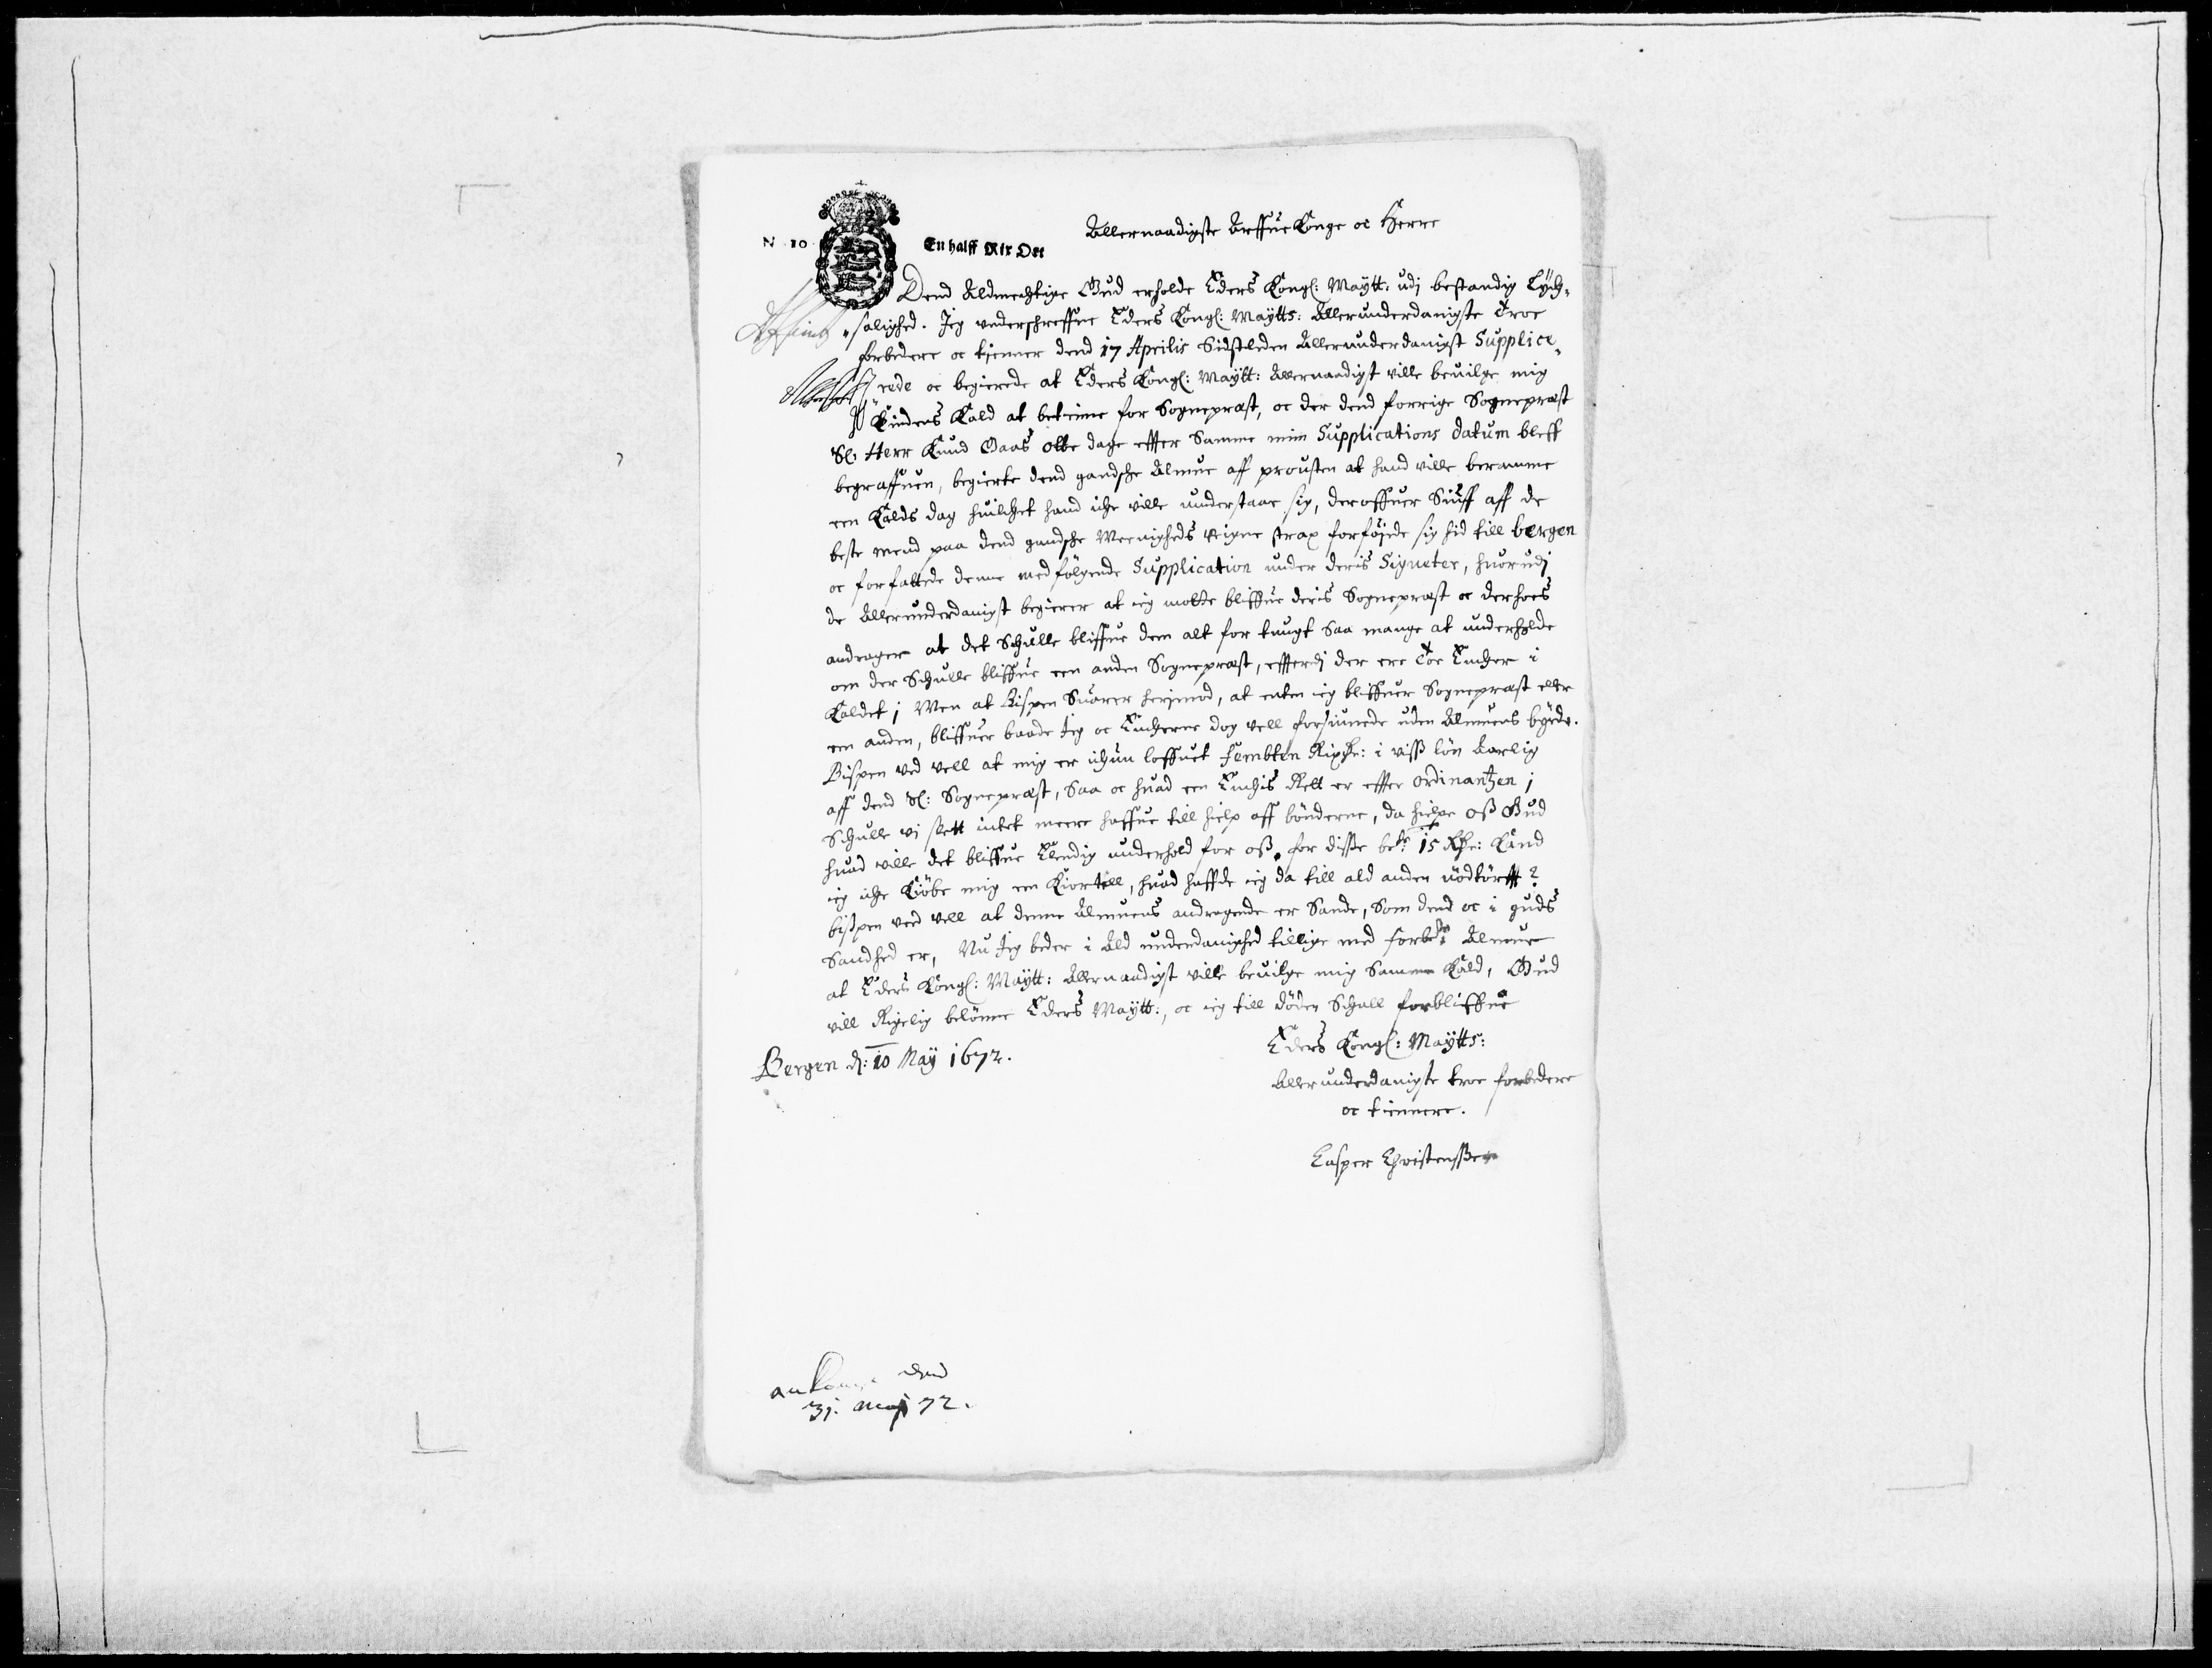 N 10
En halff Rix Ort
Allernaadigste Arffue Konge oc Herre
Dend Aldmechtige Gud erholde Eders Kongl: Maÿtt: udj bestandig Lÿch-
salighed. Jeg underschreffne Eders Kongl: Maÿtts: Allerunderdanigste troe
forbedere oc tienner dend 17 Aprilis Sidstleden Allerunderdanigst Supplice-
rede oc begierede at Eders Kongl: Maÿtt: Allernaadigst ville beuilge mig
Kinders Kald at betienne for Sognepræst, oc der dend forrige Sogneprest
Sl: Herr Knud Gaas otte dage effter Samme min Supplications datum bleff
begraffuen, begierte dend gandsche Almue aff prousten at hand ville beramme
een Kalds dag huilchet hand iche ville understaae sig, deroffuer Siuff aff de
beste mend paa dend gandsche Meenigheds veigne strax forföjede sig hid till bergen
oc forfattede denne medfölgende Supplication under deris Signeter, huorudj
de Allerunderdanigst begierer at ieg motte bliffue deris Sogneprest oc derhoes
andrager at det Schulle bliffue dem alt for tungt Saa mange at underholde
om der Schulle bliffue een anden Sogneprest, effterdj der ere toe Encher i
Kaldet; Men at Bispen Suarer herjmod, at enten ieg bliffuer Sogneprest eller
een anden, bliffuer baade Jeg oc Encherne dog vell forsiunede uden Almuens bÿrde.
Bispen ved vell at mig er ichun loffuet fembten Rixdr: i viss lön Aarlig
aff dend Sl: Sogneprest, Saa oc huad een Enchis Rett er effter ordinantzen;
Schulle vi slett intet meere haffue till hielp aff bönderne, da hielpe oss Gud
huad ville det bliffue Elendig underhold for oss, for disse bete 15 Rdr: Kand
ieg iche Kiöbe mig een Kiortell, huad haffde ieg da till ald anden nödtörfft?
bispen veed vell at denne Almuens andragende er Sande, Som dend oc i guds
Sandhed er, Nu Jeg beder i Ald underdanighed tillige med forbete Almue
at Eders Kongl: Maÿtt: Allernaadigst ville beuilge mig Samme Kald, Gud
vill Rigelig belönne Eders Maÿtt:, oc ieg till döden Schall forbliffue
Eders Kongl: Maÿtts:
Bergen d: 10 Maÿ 1672.
Allerunderdanigste troe forbedere
oc tiennere.
Casper Christenssen
ankom dend
31. Maj 72.